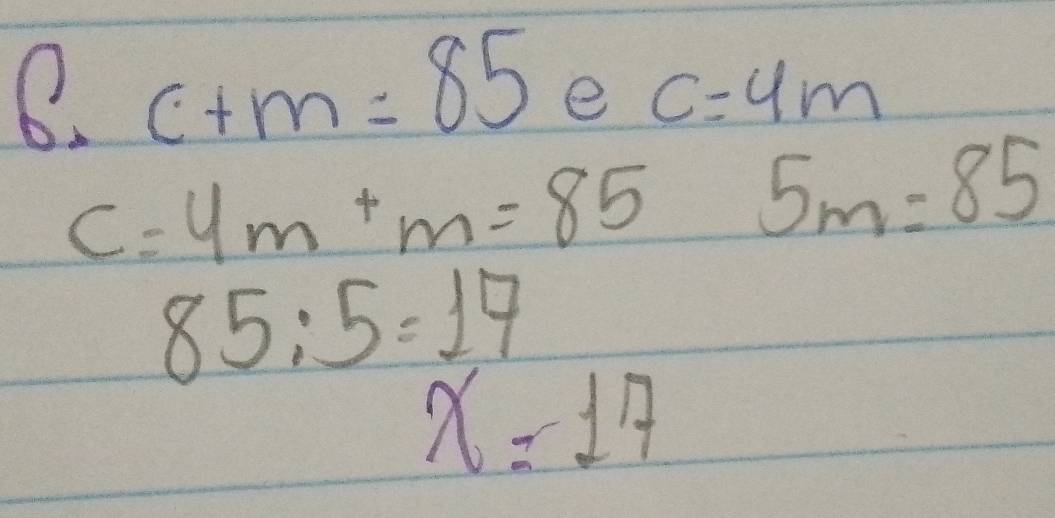 6. c+m=85 e c=4m
c=4m+m=85 5m=85
85:5=17
x=17